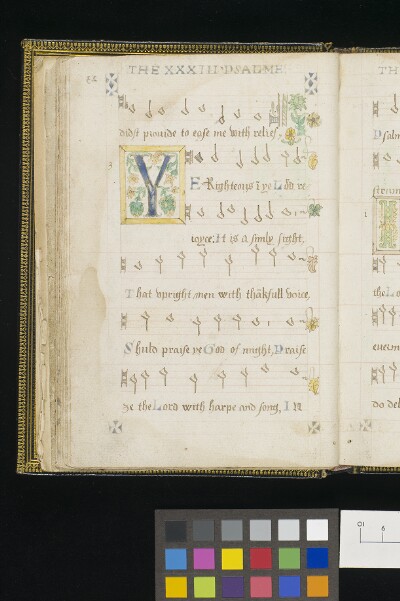 THE XXXIII PSALME
TH
didst prouide to ease me with relief.
YE Righteous ī ye Lord re-
ioyce: It is a semly sight,
That vpright men with thākfull voice,
Shuld praise ye God of might, Praise
ye the Lord with harpe and song, IN
Psalm
the Lo
euerm
do de